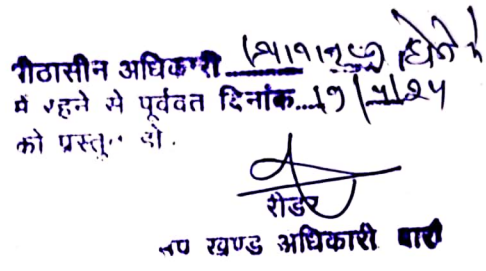 पीठासीन अधिकारी
में रहने से पूर्ववत दिनांक...19/5/25
को प्रस्तुत हो.
रीडर
उप खण्ड अधिकारी